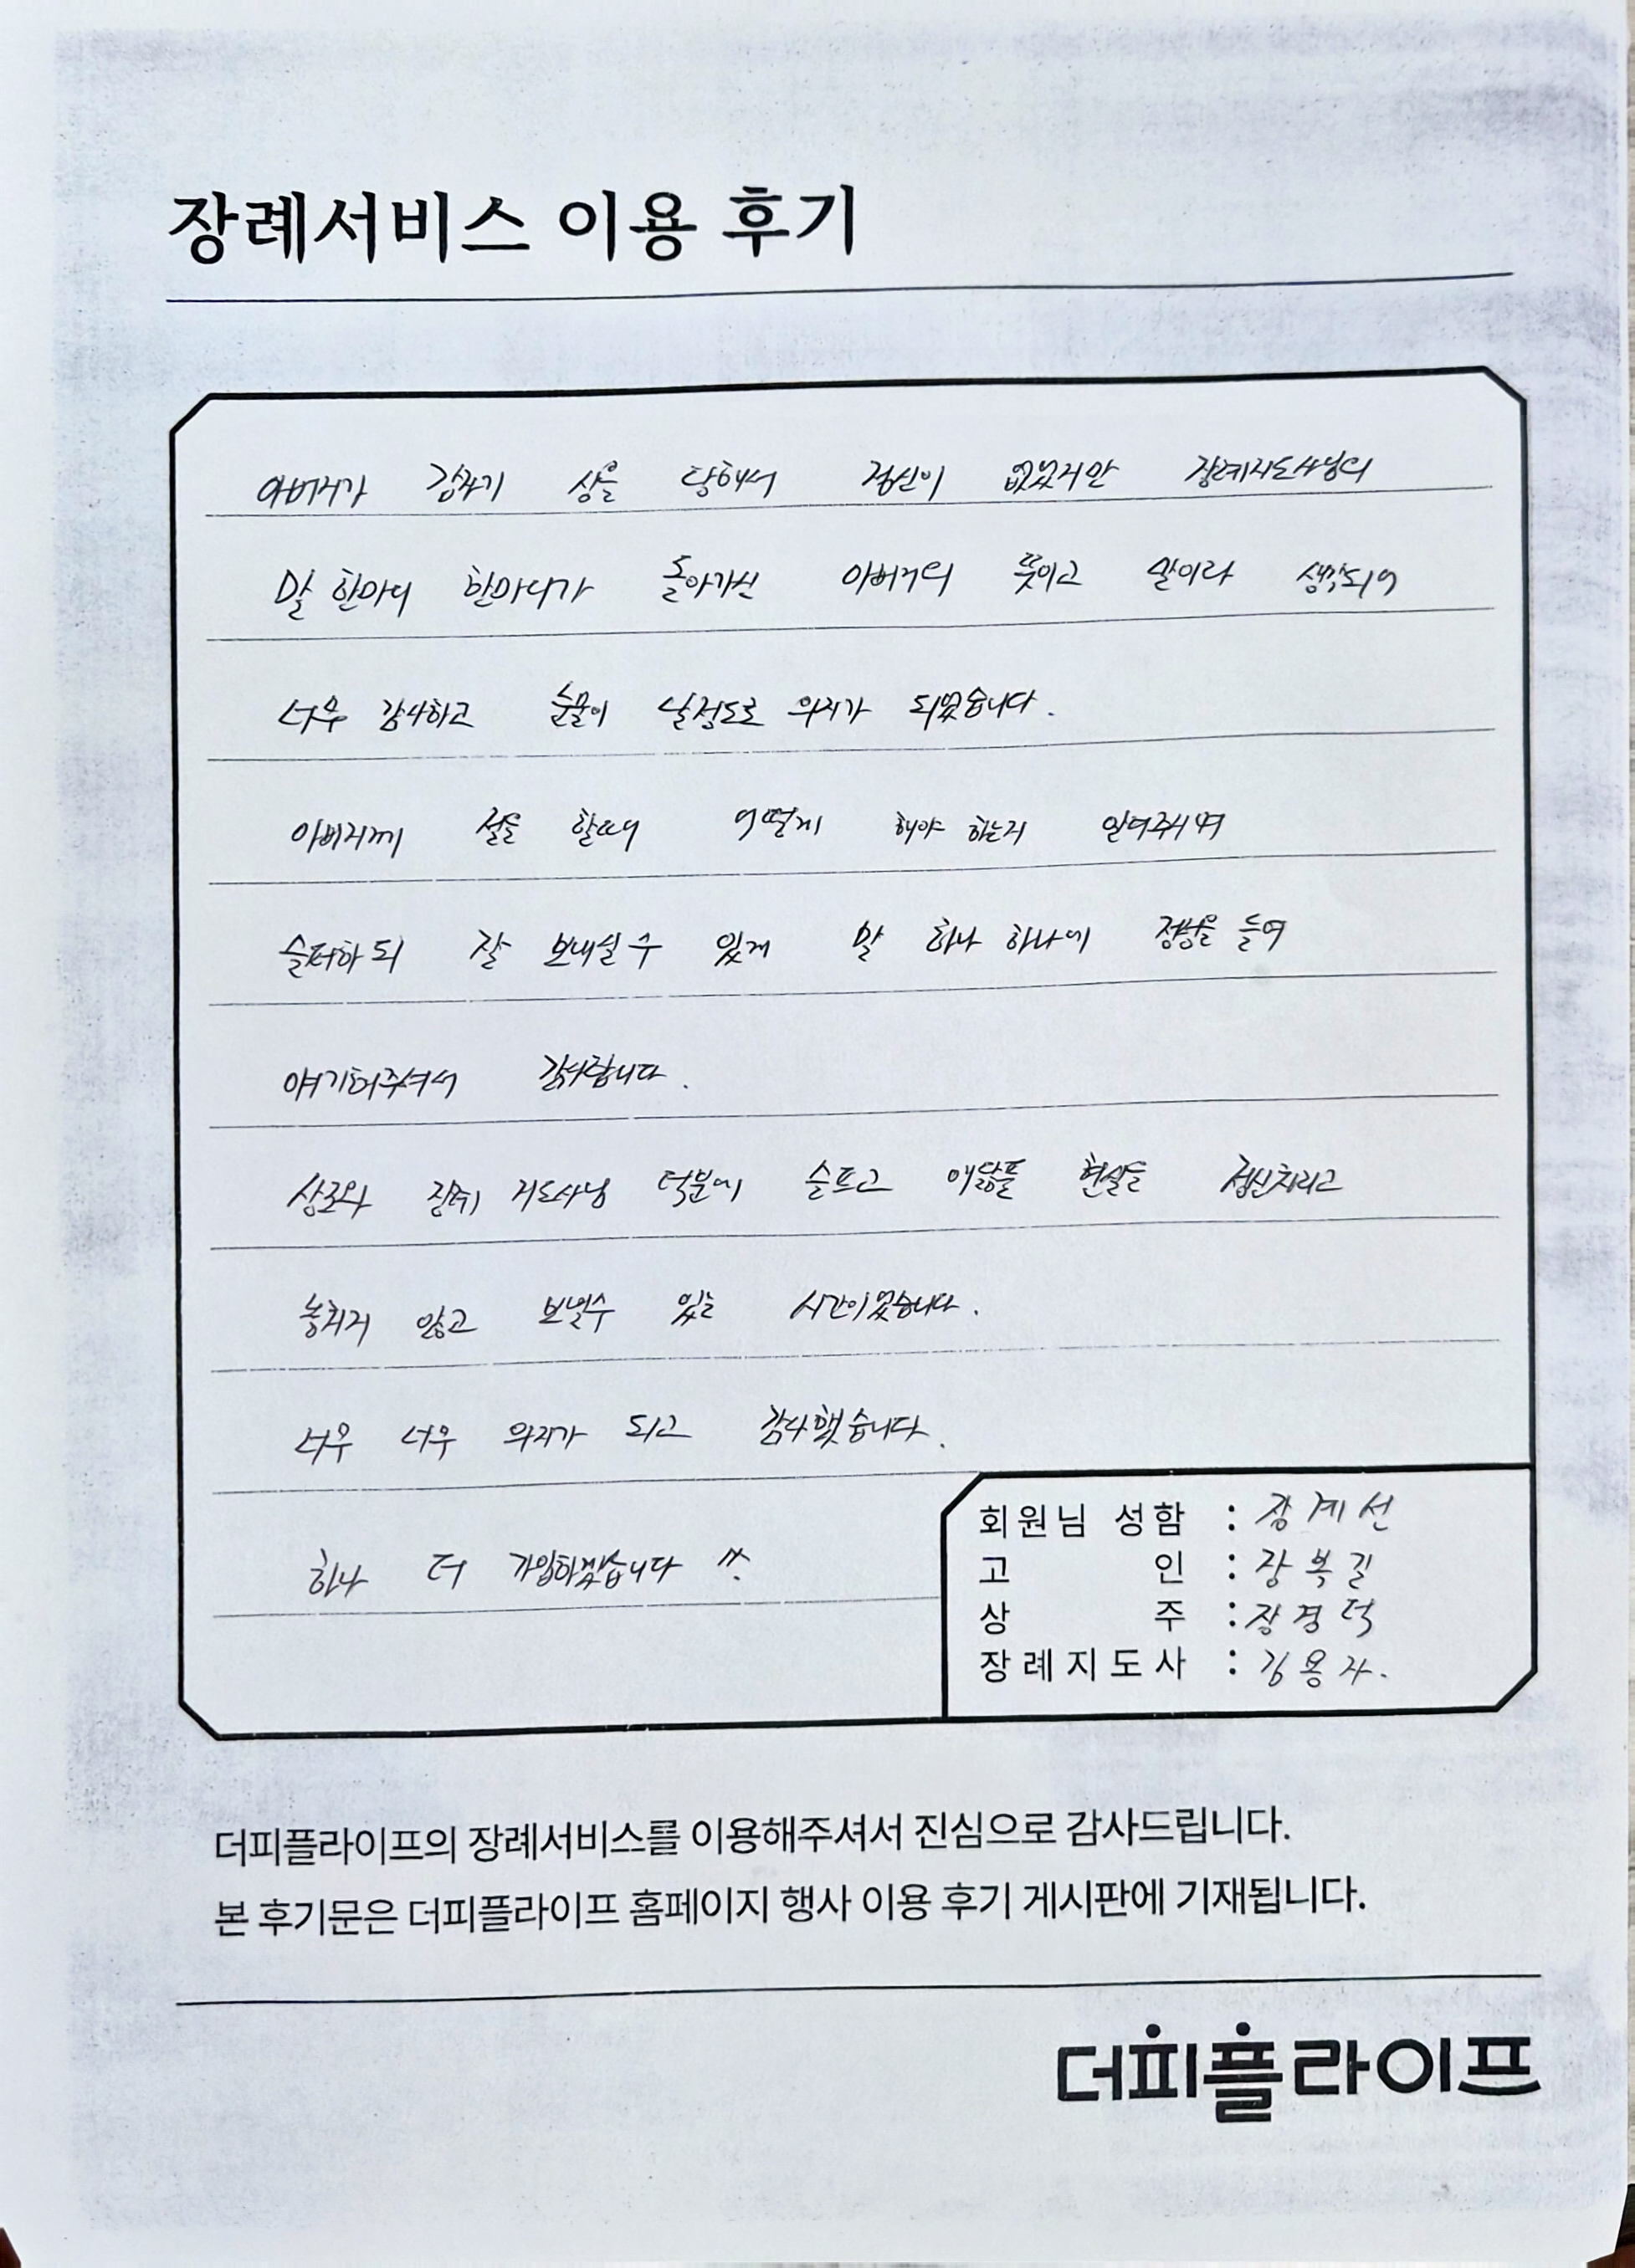 장례서비스 이용 후기
아버지가 갑자기 상을 당해서 정신이 없었지만 장례지도사님의
말 한마디 한마디가 돌아가신 아버지의 뜻이고 말이라 생각되어
너무 감사하고 눈물이 날정도로 의지가 되었습니다.
아버지께 절을 할때 어떻게 해야 하는지 알려주시며
슬퍼하되 잘 보내실 수 있게 말 하나 하나에 정성을 들여
얘기해주셔서 감사합니다.
상조와 장례 지도사님 덕분에 슬프고 애닳픈 현실을 정신차리고
놓치지 않고 보낼수 있는 시간이었습니다.
너무 너무 의지가 되고 감사했습니다.
하나 더 가입하겠습니다 ^^.
회원님 성함 : 장계선
고 인 : 장복길
상 주 : 장경덕
장례지도사 : 김용자.
더피플라이프의 장례서비스를 이용해주셔서 진심으로 감사드립니다.
본 후기문은 더피플라이프 홈페이지 행사 이용 후기 게시판에 기재됩니다.
더피플라이프